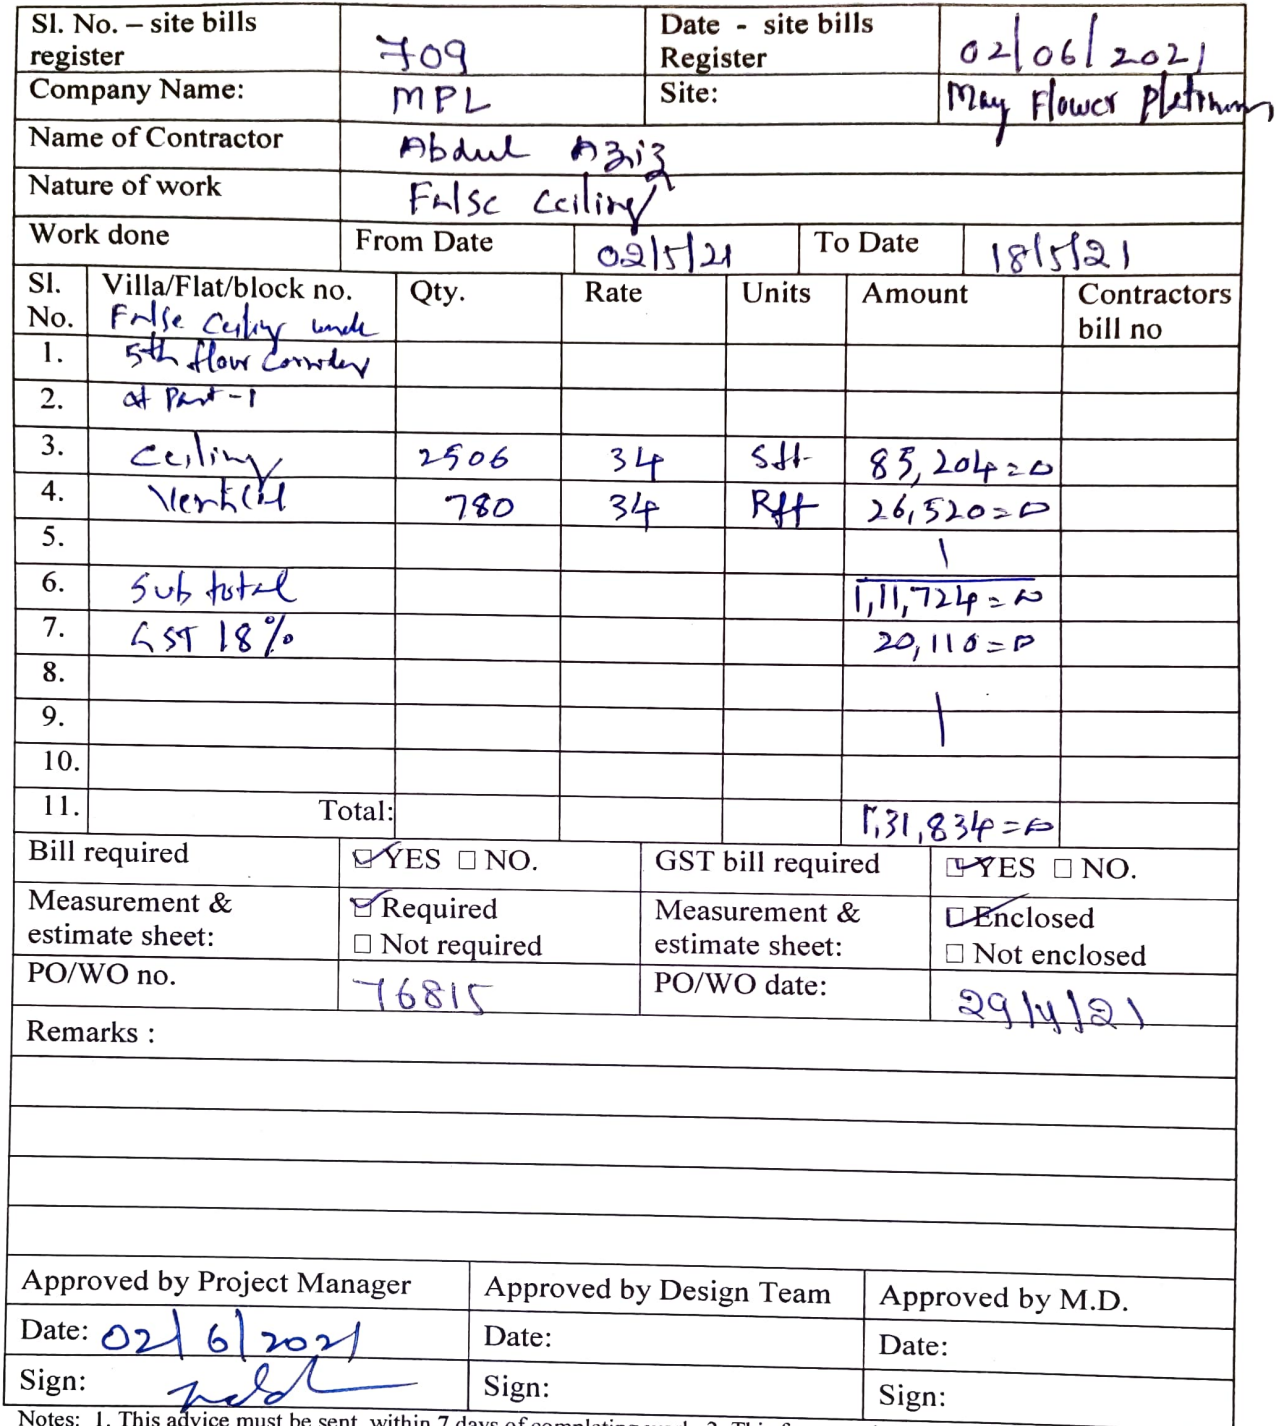 Sl. No. – site bills register 709 Date - site bills Register 02/06/2021
Company Name: MPL Site: May Flower Platinum
Name of Contractor Abdul Aziz
Nature of work False Ceiling
Work done From Date 02/5/21 To Date 18/5/21
Sl. No. Villa/Flat/block no. Qty. Rate Units Amount Contractors bill no
False Ceiling work
1. 5th floor Corridor
2. at Part-1
3. Ceiling 2506 34 Sft 85,204=0
4. Vertical 780 34 Rft 26,520=0
5.
6. Sub total 1,11,724=0
7. GST 18% 20,110=0
8.
9.
10.
11. Total: 1,31,834=0
Bill required ☑ YES ☐ NO. GST bill required ☑ YES ☐ NO.
Measurement & estimate sheet: ☑ Required Measurement & estimate sheet: ☑ Enclosed
☐ Not required ☐ Not enclosed
PO/WO no. 76815 PO/WO date: 29/4/21
Remarks :
Approved by Project Manager Approved by Design Team Approved by M.D.
Date: 02/6/2021 Date: Date:
Sign: Sign: Sign:
Notes: 1. This advice must be sent within 7 days of completing